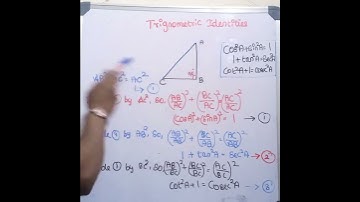 Trignometric Identities
A
C
B
90°
Cos²A+Sin²A=1
1+tan²A=Sec²A
Cot²A+1=Cosec²A
= AC²
①
by AC², So, (AB/AC)² + (BC/AC)² = (AC/AC)²
Cos²A + Sin²A = 1 → ①
① by AB², So (AB/AB)² + (BC/AB)² = (AC/AB)²
1 + tan²A = Sec²A → ②
① by BC², So (AB/BC)² + (BC/BC)² = (AC/BC)²
Cot²A + 1 = Cosec²A → ③